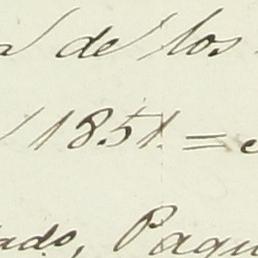 de los
1851. =
ado, Paqu